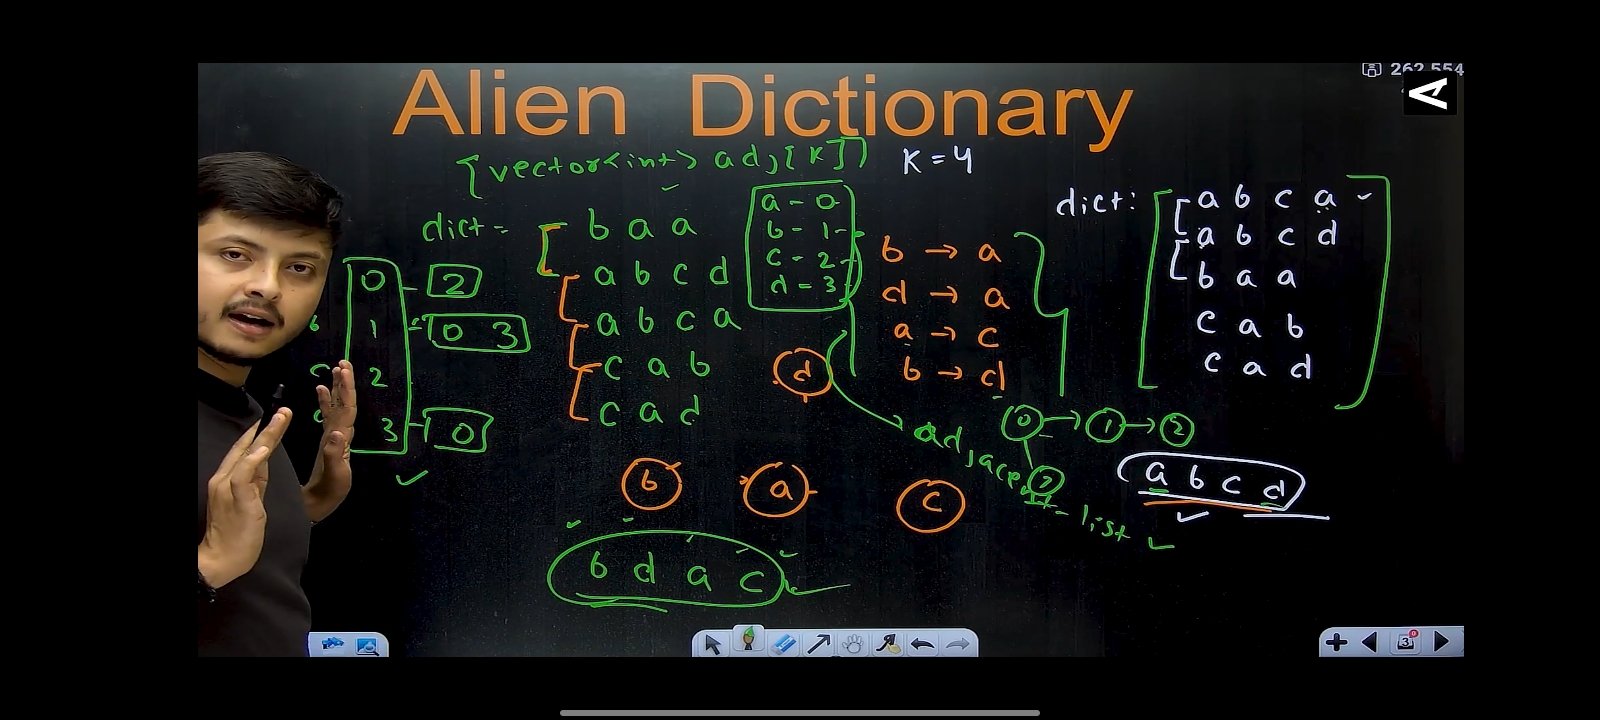 262,554
Alien Dictionary
{vector<int> adj[K]}
K = 4
dict =
b a a
a b c d
a b c a
c a b
c a d
a - 0
b - 1
c - 2
d = 3
b → a
d → a
a → c
b → d
dict:
a b c a
a b c d
b a a
c a b
c a d
0 - 2
b 1 0 3
c 2
3 0
d
b a c
0 → 1 → 2
adjacent - list
a b c d
b d a c
3